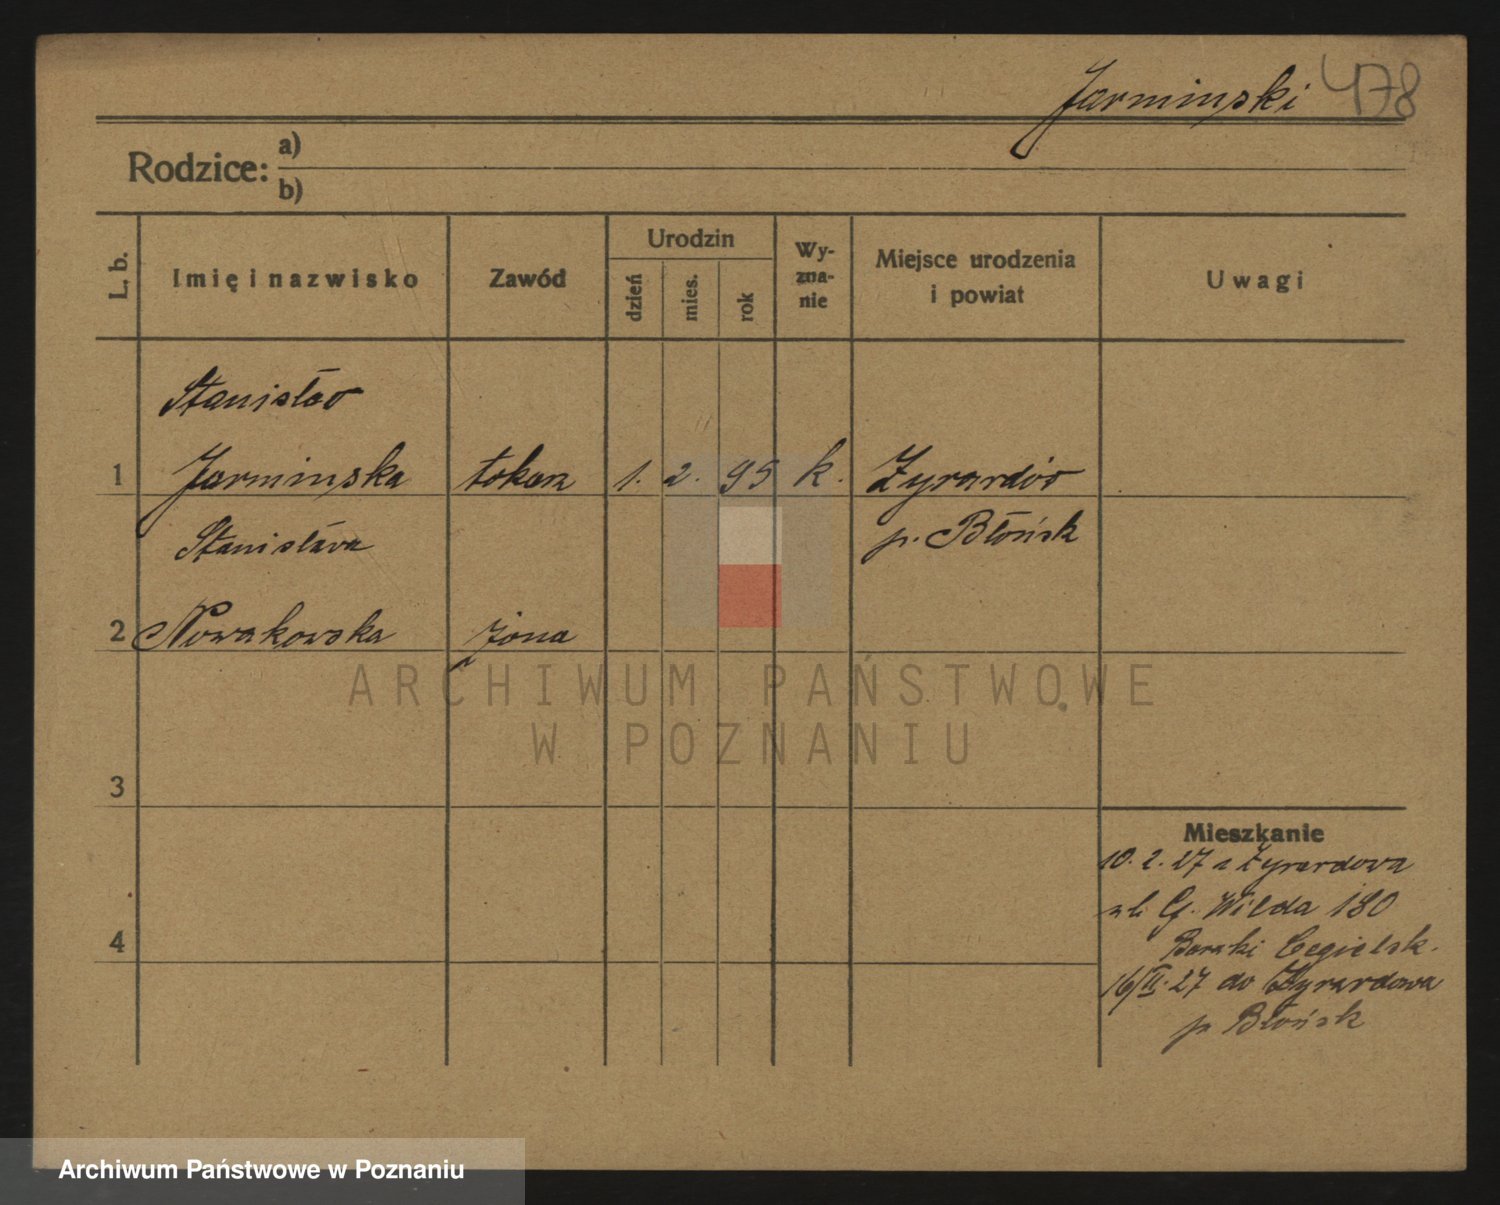 Jarminski 478
Rodzice: a)
b)
L. b. Imię i nazwisko Zawód Urodzin dzień mies. rok Wy-zna-nie Miejsce urodzenia i powiat Uwagi
Stanisław
1 Jarminska tokarz 1. 2. 95 k. Zyrardów
Stanisława p. Błońsk
2 Nowakowska żona
ARCHIWUM PAŃSTWOWE
W POZNANIU
3
Mieszkanie
10. 2. 27 z Żyrardowa
ul. G. Wilda 180
4 Baraki Cegielsk.
16/III. 27 do Żyrardowa
p. Błońsk
Archiwum Państwowe w Poznaniu